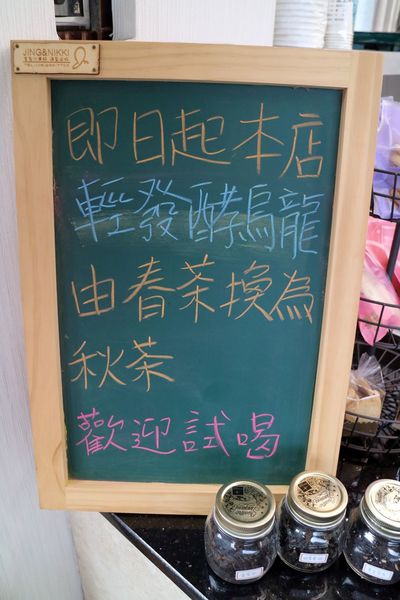 JING&NIKKI
即日起本店
輕發酵烏龍
由春茶換為
秋茶
歡迎試喝